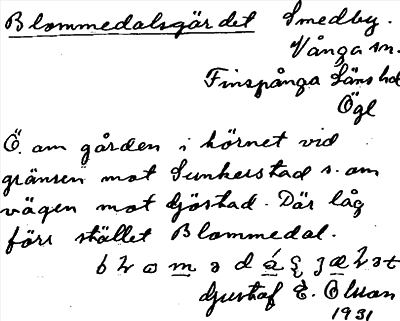 Blommedalsgärdet Smedby.
Vånga sn.
Finspånga läns hd
Ögl
Ö. om gården i hörnet vid
gränsen mot Sunkerstad s. om
vägen mot Gjöstad. Där låg
förr stället Blommedal.
Gustaf E. Olsson
1931